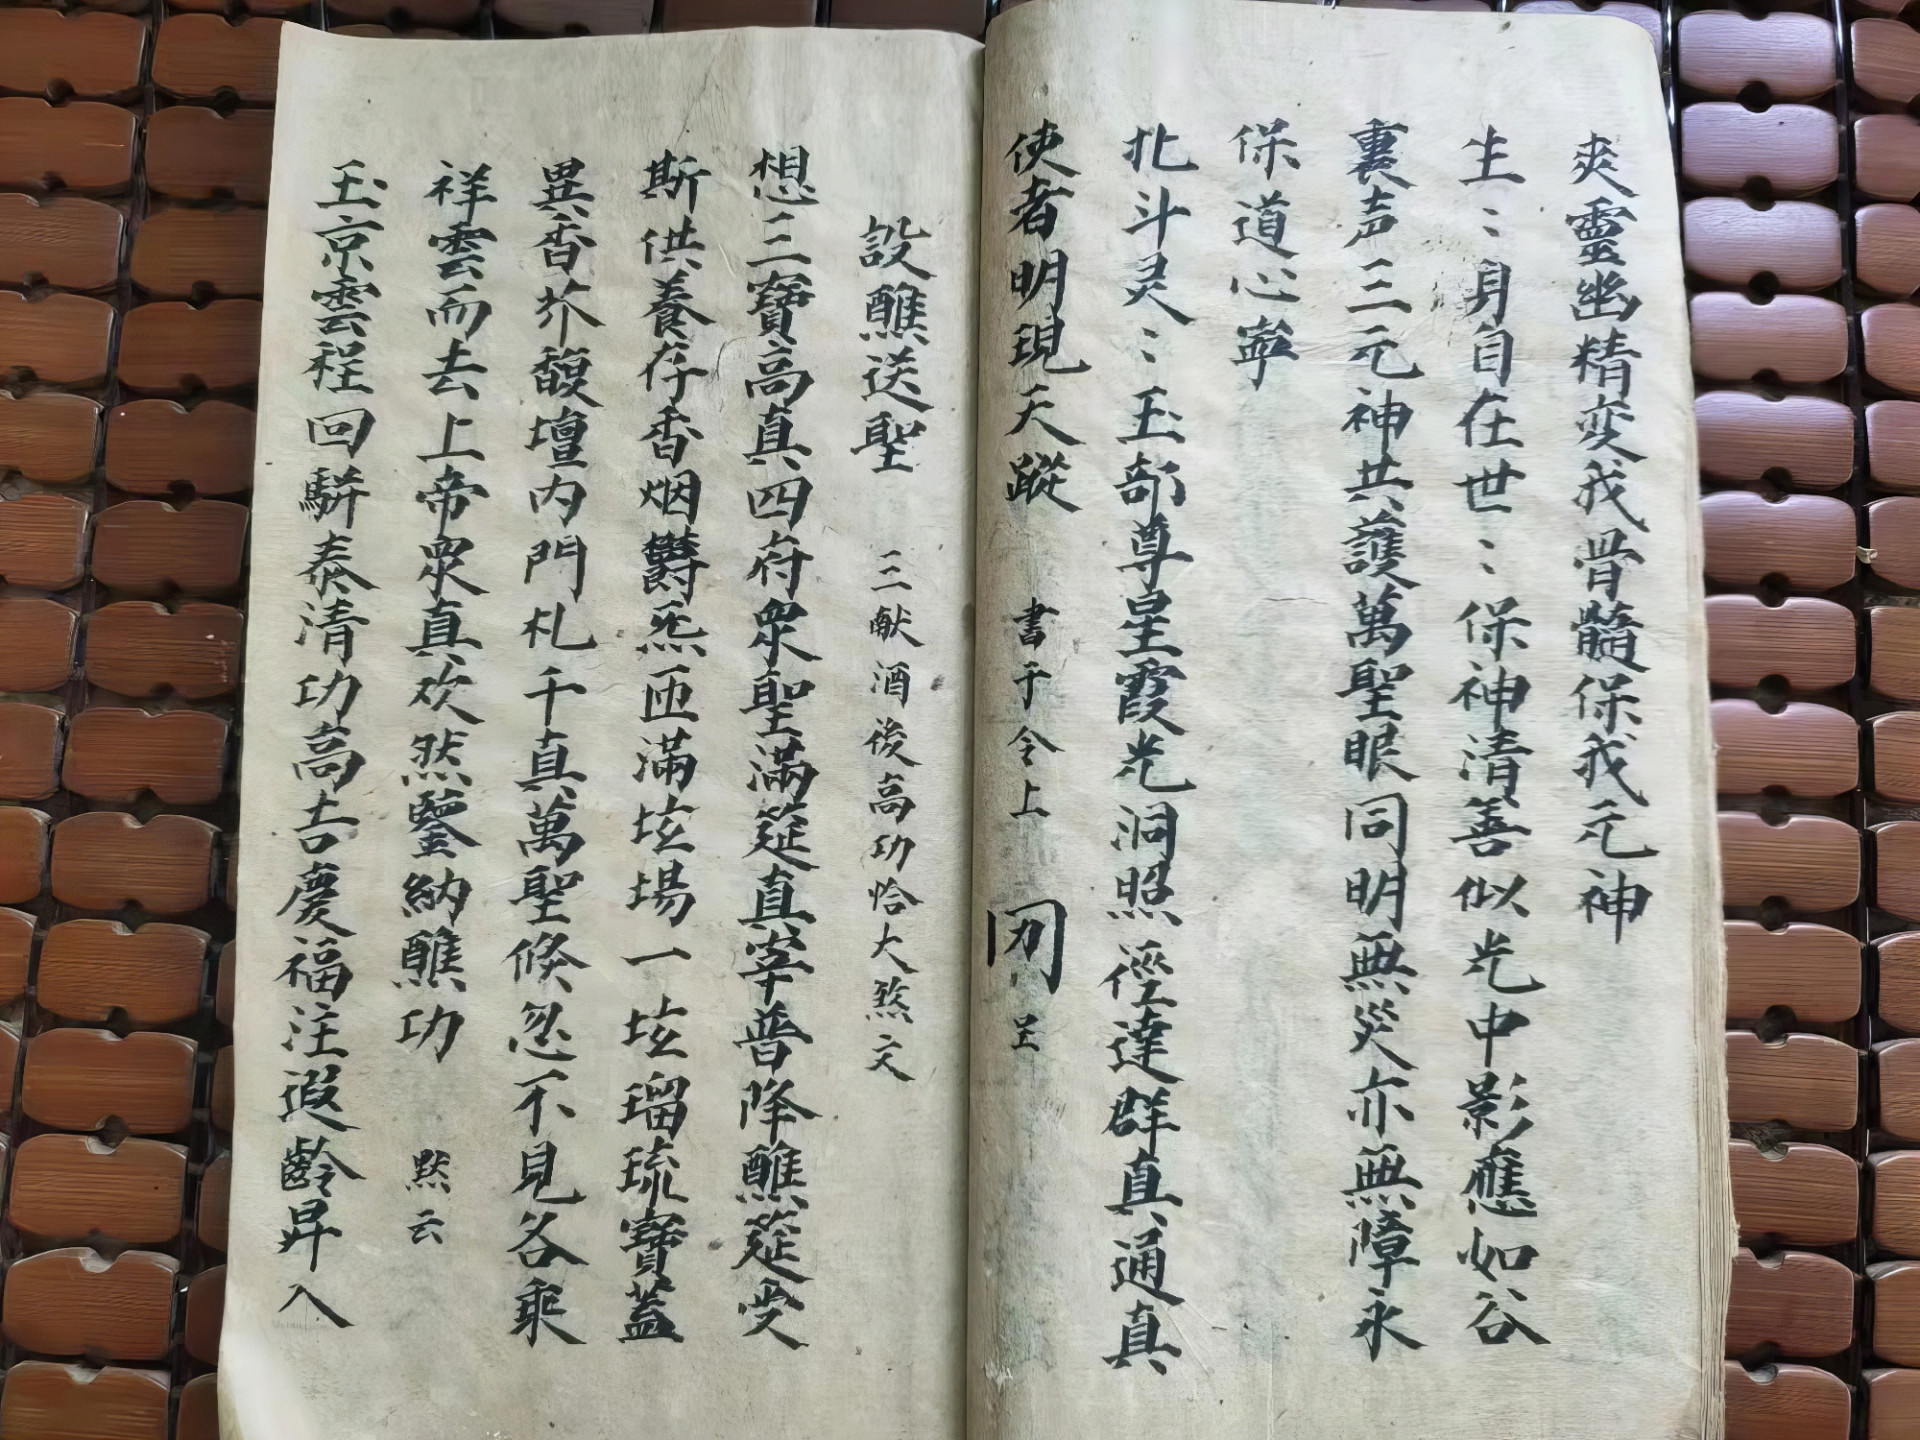 爽靈幽精变我骨髓保我元神
生〻身自在世〻保神清善似光中影應如谷
裏声三元神共護萬聖眼同明無災亦無障永
保道心寧
北斗灵〻玉部尊星霞光洞照徑達群真通真
使者明現天蹤 書于令上 呈
設醮送聖 三献酒後高功恰大煞文
想三寶高真四府眾聖滿筵真宰普降醮筵受
斯供養存香烟欝炁匝滿坛場一坛瑠琉寶蓋
異香芥馥壇内門札千真萬聖倏忽不見各乘
祥雲而去上帝眾真欢然鑒納醮功 默云
玉京雲程回駢泰清功高吉慶福注遐齡昇入